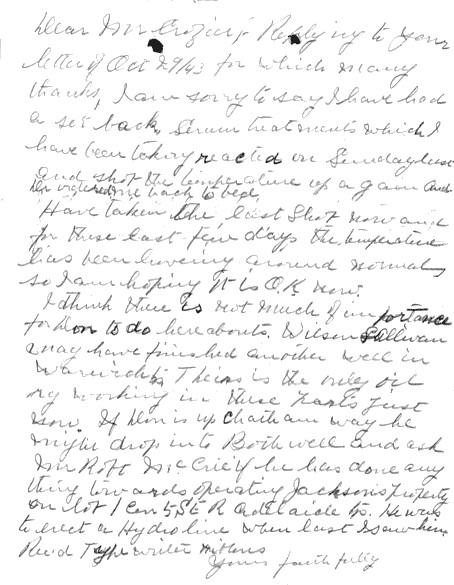 Dear Mr Crozier; Replying to your
letter of Oct 29/43 for which many
thanks, I am sorry to say I have had
a set back, Serum treatments which I
have been taking reacted on Sunday last
and shot the temperature up a gain and
Dr ordered me back to bed.
Have taken the last shot now and
for these last few days the temperature
has been hovering around normal,
so I am hoping it is O.K now.
I think there is not much of importance
for Don to do here abouts. Wilson Sullivan
may have finished another well in
Warwick Theirs is the only oil
rig working in these parts just
now. If Don is up Chatham way he
might drop into Bothwell and ask
Mr Robt McCrie if he has done any
thing towards operating Jackson's Property
on lot 1 Con 5 S E R Adelaide Tp. He was
to erect a Hydro line when last I saw him
Rec'd Type writer ribbons
Yours faithfully